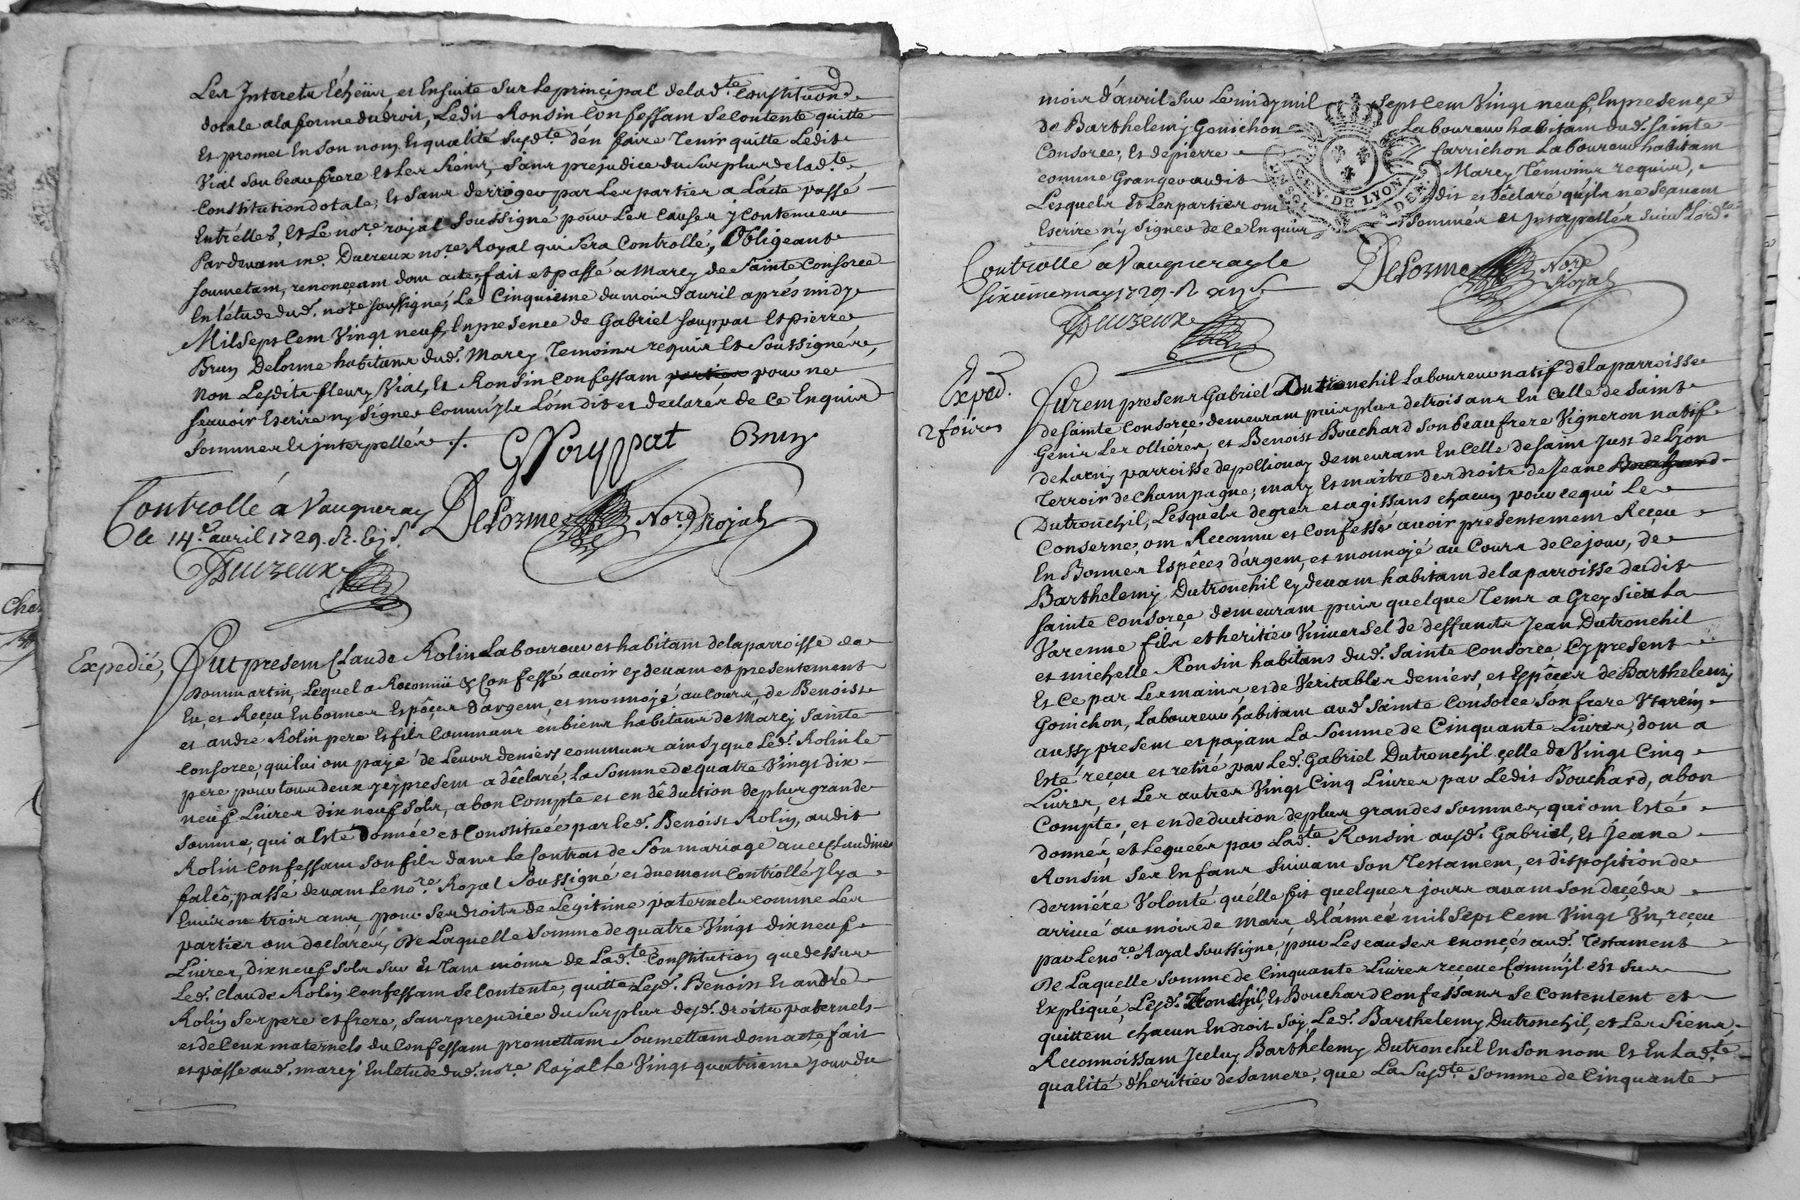 Les Interets Echeus, et Ensuite Sur Le principal de lad.te Constituon
dotale a la forme du droit, Ledit Ronsin Confessam Se Contente quitte
Et promet En Son nom Et qualité Susd.te d'en faire Tenir quitte Ledit
Vial Son beau frere Et Les Siens, Sans prejudice du Surplus de lad.te
Constitution dotale, Et Sans derroger par Les parties a L'acte passé
Entr'elles, Et Le no.re royal Soussigné pour Les Causes y Contenues
Pardevam m.e Ducreux no.re Royal qui Sera Controllé, Obligeant
Soumetam, renonçeam dom acte, fait et passé a Marcy de Sainte Consorce
En l'étude dud. no.re Soussigné, Le Cinquieme du mois d'avril après midy
Mil Sept Cem Vingt neuf, En presence de Gabriel Souppat Et pierre
Brun Delorme habitans dud. Marcy Temoins requis Et Soussignés,
Non Lesdits fleury Vial, Et Ronsin Confessam parties pour ne
Sçavoir Escrire ny Signer Comm'yls L'om dit et declarés de Ce Enquis
Sommer & Interpellés ./.
G Souppat Brun
Controllé a Vaugneray
Ce 14.e avril 1729. R.
Delorme No.re Royal
Ducreux
Expedié,
Fut presem Claude Rolin Laboureur et habitam de la parroisse de
Dommartin, Lequel a Reconnu & Confessé avoir cy devam et presentement
Eu, et Reçeu En bonnes Especes d'argem, et monnoyé au Cours, de Benoist
et andré Rolin pere Et fils Communs En biens habitans de Marcy Sainte
Consorce, qui lui om payé de Leurs deniers communs ainsy que Led. Rolin le
pere pour tous deux icy presem a déclaré, La Somme de quatre Vingt dix
neuf Livres dix neuf Sols, a bon Compte et en déduction de plus grande
Somme, qui a Esté Donnée et Constituée par led. Benoist Rolin, audit
Rolin Confessam Son fils dans Le Contrat de Son mariage avec Claudine
falcô, passé devam Le no.re Royal Soussigné et duemom Controllé Il y a
Environ trois ans, pour Ses droits de Legitime paternels comme Les
parties om declarées, De Laquelle Somme de quatre Vingt dix neuf
Livres, dix neuf Sols Sur Et Tam moins de Lad.te Constitution que dessus
Led. Claude Rolin Confessam Se Contente, quitte Lesd. Benoist Et andré
Rolin Ses pere et frere, Sans prejudice du Surplus desd. droits paternels
et de Ceux maternels du Confessam promettam Soumettam dom acte, fait
et passé aud. marcy En letude dud. no.re Royal Le Vingt quatrieme jour du
mois d'avril Sur Le midy mil Sept Cem Vingt neuf, En presence
de Barthelemy Gonichon Laboureur habitam dud. Sainte
Consorce, Et de pierre Sarrichon Laboureur habitam
comme Granger audit Marcy Temoins requis,
Lesquels Et Les parties om dit et Déclaré qu'yls ne Sçavam
Escrire ny Signer de Ce Enquis Sommés Et Interpellés Suivt Lord.ce
GEN. DE LYON
Controllé a Vaugneray le
Sixieme may 1729. R
Delorme No.re Royal
Ducreux
Exped.
2 foires
Furem presens Gabriel Dutronchil Laboureur natif de la parroisse
de Sainte Consorçe demeuram puis plus de trois ans En Celle de Saint
Genis Les Ollieres, et Benoist Bouchard Son beau frere Vigneron natif
de Larny parroisse de pollionay demeuram En Celle de Saint Just de Lyon
Terroir de Champagne, mary Et maitre des droits de Jeane Bouchard
Dutronchil, Lesquels de gres et agissans chacun pour ce qui Le
Conserne, om Reconnu et Confessé avoir presentement Reçeu
En Bonnes Espêces d'argem, et monnoyé au Cours de Ce jour, de
Barthelemy Dutronchil cy devam habitam de la parroisse dudit
Sainte Consorçe demeuram puis quelque Tems a Greysieu La
Varenne fils et heritier Universel de deffunts Jean Dutronchil
et michelle Ronsin habitans dud. Sainte Consorce Cy present
Et Ce par Les mains, et de Veritables deniers, et Espêces de Barthelemy
Gonichon, Laboureur habitam aud. Sainte Consorce Son frere Uterin
aussy presem et payam La Somme de Cinquante Livres, dom a
Esté reçeu et retiré par Led. Gabriel Dutronchil çelle de Vingt Cinq
Livres, et Les autres Vingt Cinq Livres par Ledit Bouchard, a bon
Compte, et en deduction de plus grandes Sommes, qui om Esté
donnés, et Legués par Lad.te Ronsin ausd. Gabriel, Et Jeane
Ronsin Ses Enfans Suivam Son Testamem, et disposition de
derniére Volonté qu'elle fit quelques jours avam Son decéds
arrivé au mois de Mars de l'année mil Sept Cem Vingt Un, reçeu
par Le no.re Royal Soussigné, pour Les causes enonçés aud. Testament
De Laquelle Somme de Cinquante Livres reçeue Comm'yl est Sur
Expliqué, Lesd. Tronchil, Et Bouchard Confessans Se Contentent et
quittem chacun En droit Soy Led. Barthelemy Dutronchil, et Les Siens,
Reconnoissam Iceluy Barthelemy Dutronchil En Son nom Et En Lad.te
qualité d'heritier de Sa mere, que La Susd.te Somme de Cinquante